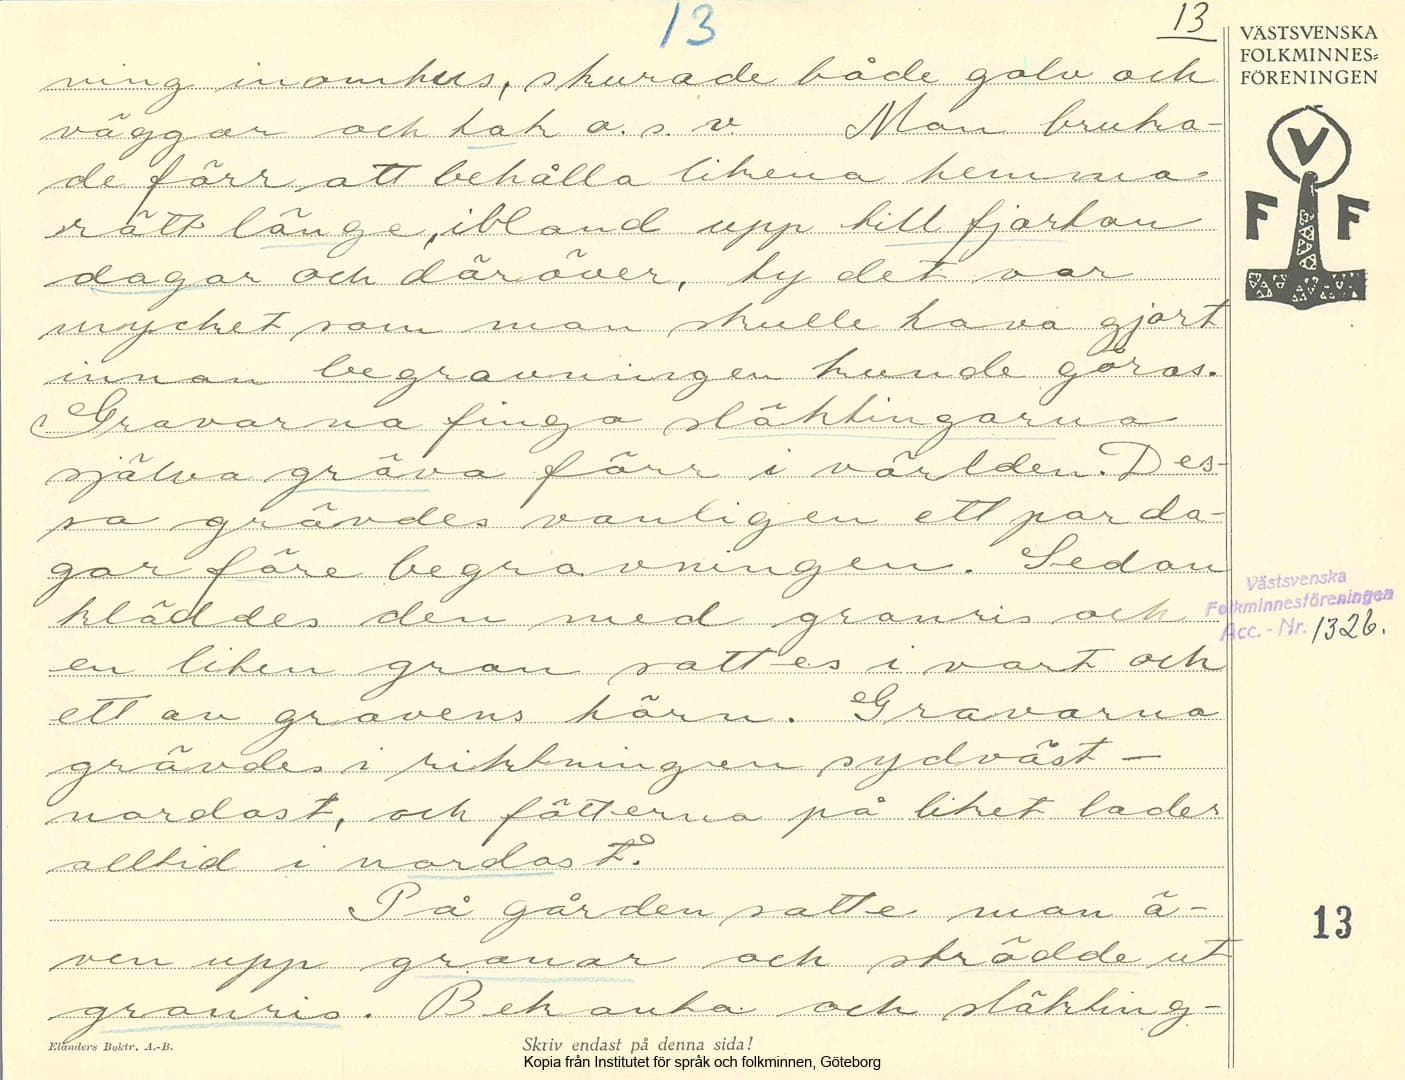 13
13
VÄSTSVENSKA
FOLKMINNES=
FÖRENINGEN
V
F F
ning inomhus, skurade både golv och
väggar och tak o. s. v. Man bruka-
de förr att behålla likena hemma
rätt länge, ibland upp till fjorton
dagar och däröver, ty det var
mycket som man skulle hava gjort
innan begravningen kunde göras.
Gravarna finga släktingarna
själva gräva förr i världen. Des-
sa grävdes vanligen ett par da-
gar före begravningen. Sedan
kläddes den med granris och
en liten gran sattes i vart och
ett av gravens hörn. Gravarna
grävdes i riktningen sydväst -
nordost, och fötterna på liket lades
alltid i nordost.
På gården satte man ä-
ven upp granar och strödde ut
granris. Bekanta och släkting-
Västsvenska
Folkminnesföreningen
Acc. - Nr. 1326.
13
Elanders Boktr. A.-B.
Skriv endast på denna sida!
Kopia från Institutet för språk och folkminnen, Göteborg